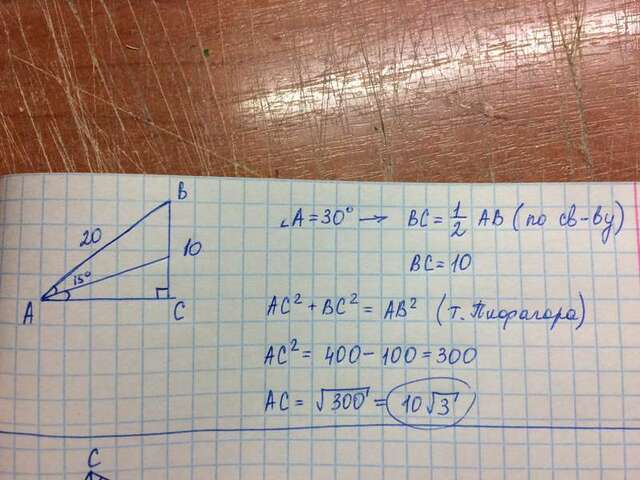 A
20
15°
B
10
C
∠A = 30° → BC = 1/2 AB (по св-ву)
BC = 10
AC² + BC² = AB² (т. Пифагора)
AC² = 400 - 100 = 300
AC = √300 = 10√3
C